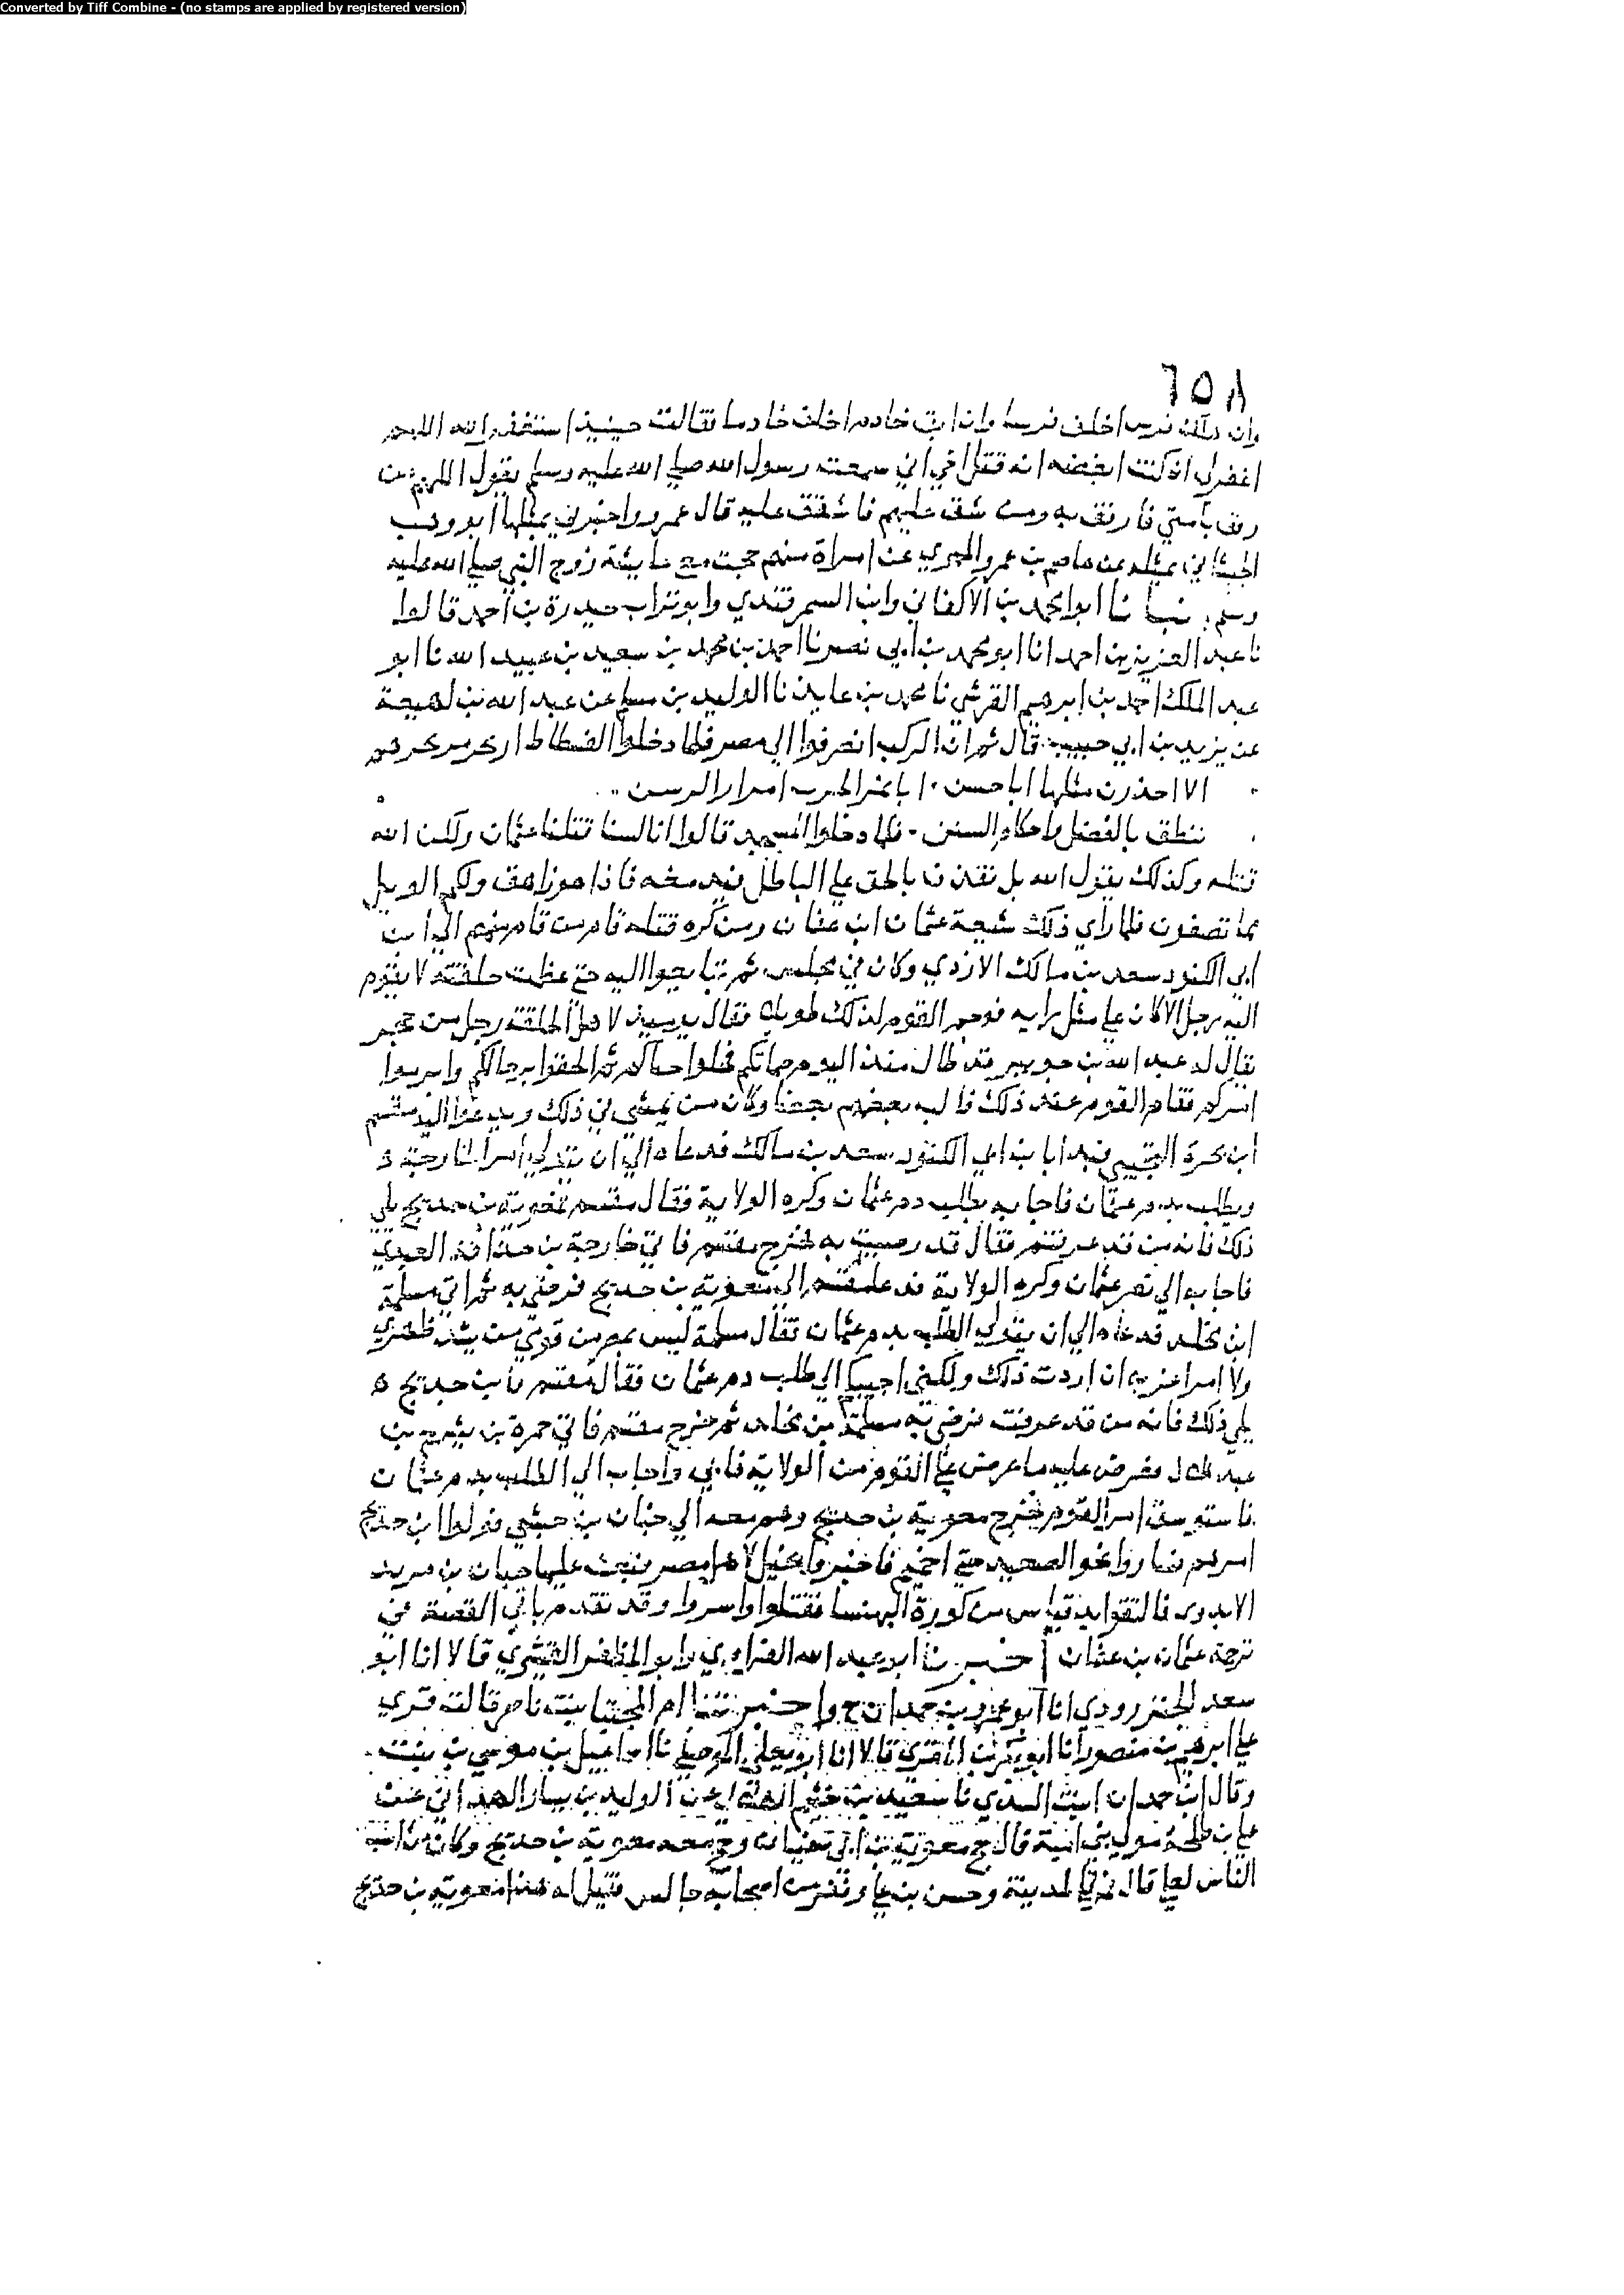 Converted by Tiff Combine - (no stamps are applied by registered version)
٦٥٨
وان هلك فرس اخلف فرسا وان ابق خادم اخلف خادما فقالت حينيذ استغفر الله اللهم
اغفر لي ان كنت ابغضه انه قتل اخي اني سمعت رسول الله صلي الله عليه وسلم يقول اللهم من
رفق بأمتي فارفق به ومن شق عليهم فاشقق عليه قال عمرو واخبرني بمثلها ابو وهب
الجيشاني بمثله عن عاصم بن عمرو المهري عن امراة منهم حجت مع عايشة زوج النبي صلي الله عليه
وسلم نبا نا ابو محمد بن الاكفاني وابن السمرقندي وابو تراب حيدرة بن أحمد قالوا
نا عبد العزيز بن احمد انا ابو محمد بن ابي نصر نا احمد بن محمد بن سعيد بن عبيد الله نا ابو
عبد الملك احمد بن ابرهيم القرشي نا محمد بن عايذ نا الوليد بن مسلم عن عبد الله بن لهيعة
عن يزيد بن ابي حبيب قال ثم ان الركب انصرفوا الي مصر فلما دخلوا الفسطاط ارتجز مرتجزهم
الا احذرن مثلها ابا حسن انا نمر الحرب امرار الرسن
ننطق بالفضل واحكام السنن فلما دخلوا المسجد قالوا انا لسنا قتلنا عثمان ولكن الله
قتله وكذلك يقول الله بل نقذف بالحق علي الباطل فيدمغه فاذا هو زاهق ولكم الويل
مما تصفون فلما راي ذلك شيعة عثمان ابن عفان ومن كره قتله قام من قام منهم الي ابن
ابي الكنود سعد بن مالك الازدي وكان في مجلس ثم تتابعوا اليه حتي عظمت حلقته لا يقوم
اليه رجل الا كان علي مثل رايه فوجم القوم لذلك طويلا فقال يوميذ لاهل الحلقة رجل من حجر
يقال له عبد الله بن جويبر قد طال منذ اليوم صماتكم فحلوا حباكم ثم الحقوا برحالكم وابرموا
امركم فقام القوم عند ذلك فالب بعضهم بعضا وكان ممن يمشي في ذلك ويدعوا اليه مقسم
ابن بحرة التجيبي فبدا بابن ابي الكنود سعد بن مالك فدعاه الي ان يتولي امر الخارجة
ويطلب بدم عثمان فاجابه بطلب دم عثمان وكره الولاية فقال مقسم فمعوية بن حديج يلي
ذلك فانه من قد عرفتم فقال قد رضيت به فخرج مقسم فاتي خارجة بن حذافة العدوي
فاجابه الي نصر عثمان وكره الولاية فدعا مقسم الي معوية بن حديج فرضي به ثم اتي مسلمة
ابن مخلد فدعاه الي ان يتولي الطلب بدم عثمان فقال مسلمة ليس بمصر من قومي من يشد ظهري
ولا امر اعز به ان اردت ذلك ولكني اجيبك الي طلب دم عثمان فقال مقسم فابن حديج
يلي ذلك فانه من قد عرفت فرضي به مسلمة بن مخلد ثم خرج مقسم فاتي حمزة بن يشرح بن
عبد كلال فعرض عليه ما عرض علي القوم من الولاية فابي واجاب الي الطلب بدم عثمان
فاستوسق امر القوم فخرج معوية بن حديج وهم معه الي حبان بن حبشي فولوا ابن حديج
امرهم فساروا نحو الصعيد حتي اخبر بخيل لاهل مصر فبعث عليها حبان بن مرثد
الابدوي فالتقوا بدقياس من كورة البهنسا فقتلوا واسروا وقد تقدم باقي القصة في
ترجمة عثمان بن عفان أخبرنا ابو عبد الله الفراوي وابو المظفر القشيري قالا انا ابو
سعد الجنزرودي انا ابو عمرو بن حمدان ح واخبرتنا ام المجتبا بنت ناصر قالت قري
علي ابرهيم بن منصور انا ابو بكر بن المقري قالا انا ابو يعلي الموصلي نا اسماعيل بن موسي بن بنت
وقال ابن حمدان ابنت السدي نا سعيد بن خثيم الهلالي عن الوليد بن يسار الهمداني عن
علي بن طلحة مولي بني امية قال حج معوية بن ابي سفيان وحج معه معوية بن حديج وكان من اسب
الناس لعلي قال فمر في المدينة وحسن بن علي ونفر من اصحابه جالس فقيل له هذا معوية بن حديج